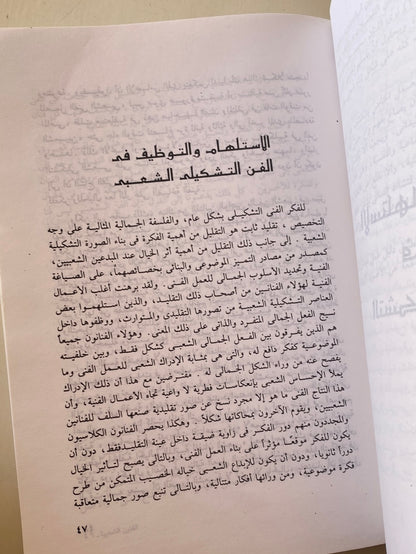 الاستلهام والتوظيف فى
الفن التشكيلى الشعبى
للفكر الفنى التشكيلى بشكل عام، والفلسفة الجمالية المثالية على وجه
التخصيص، تقليد ثابت هو التقليل من أهمية الفكرة فى بناء الصورة التشكيلية
الشعبية . إلى جانب ذلك التقليل من أهمية أثر الخيال عند المبدعين الشعبيين،
كمصدر من مصادر التميز الموضوعى والبنائى بخصائصهما، على الصياغة
الفنية وتحديد الأسلوب الجمالى للعمل الفنى. ولقد برهنت أغلب الأعمال
الفنية لهؤلاء الفنانين من أصحاب ذلك التقليد، والذين استلهموا بعض
العناصر التشكيلية الشعبية من تصورها التقليدى والمتوارث، ووظفوها داخل
نسيج الفعل الجمالى المتفرد والذاتى على ذلك المعنى. وهؤلاء الفنانون جميعاً
هم الذين يفرقون بين الفعل الجمالى الشعبى كشكل فقط، وبين خلفيته
الموضوعية كفكر دافع له، والتى هى بمثابة الإدراك الشعبى للعمل الفنى وما
يفصح عنه من وراء الشكل الجمالى له . مفترضين مع هذا أن ذلك الإدراك
يملأ الاحساس الشعبى بإنعكاسات فطرية لا واعية تجاه الأعمال الفنية، وأن
هذا النتاج الفنى ما هو إلا مجرد نسخ عن صور تقليدية صنعها السلف للفنانين
الشعبيين، ويقوم الآخرون بمحاكاتها شكلاً . وهكذا يحصر الفنانون الكلاسيون
والمجددون منهم دور الفكر فى زاوية ضيقة داخل عينة التقليد فقط، دون أن
يكون للفكر موقعًا مؤثراً على بناء العمل الفنى، وبالتالى يصبح لتأثير الخيال
دوراً ثانوياً، ودون أن يكون للإبداع الشعبى خياله الخصيب المتمكن من طرح
فكرة موضوعية، ومن ورائها أفكار متتالية، وبالتالى تنبع صور جمالية متعاقبة
٤٧